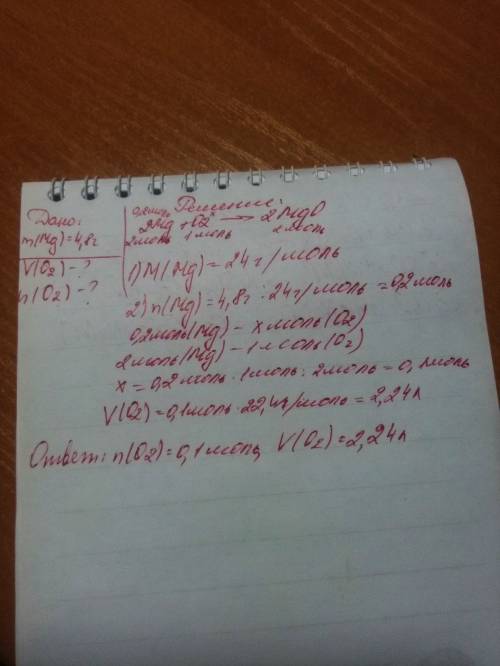 Дано:
m(Mg)=4,8г
V(O2)-?
n(O2)-?
Решение:
0,2моль x
2Mg + O2 → 2MgO
2моль 1моль 2моль
1) M(Mg)=24г/моль
2) n(Mg)=4,8г:24г/моль=0,2моль
0,2моль(Mg) - x моль(O2)
2моль(Mg) - 1моль(O2)
x = 0,2моль·1моль:2моль=0,1моль
V(O2)=0,1моль·22,4л/моль=2,24л
Ответ: n(O2)=0,1моль, V(O2)=2,24л